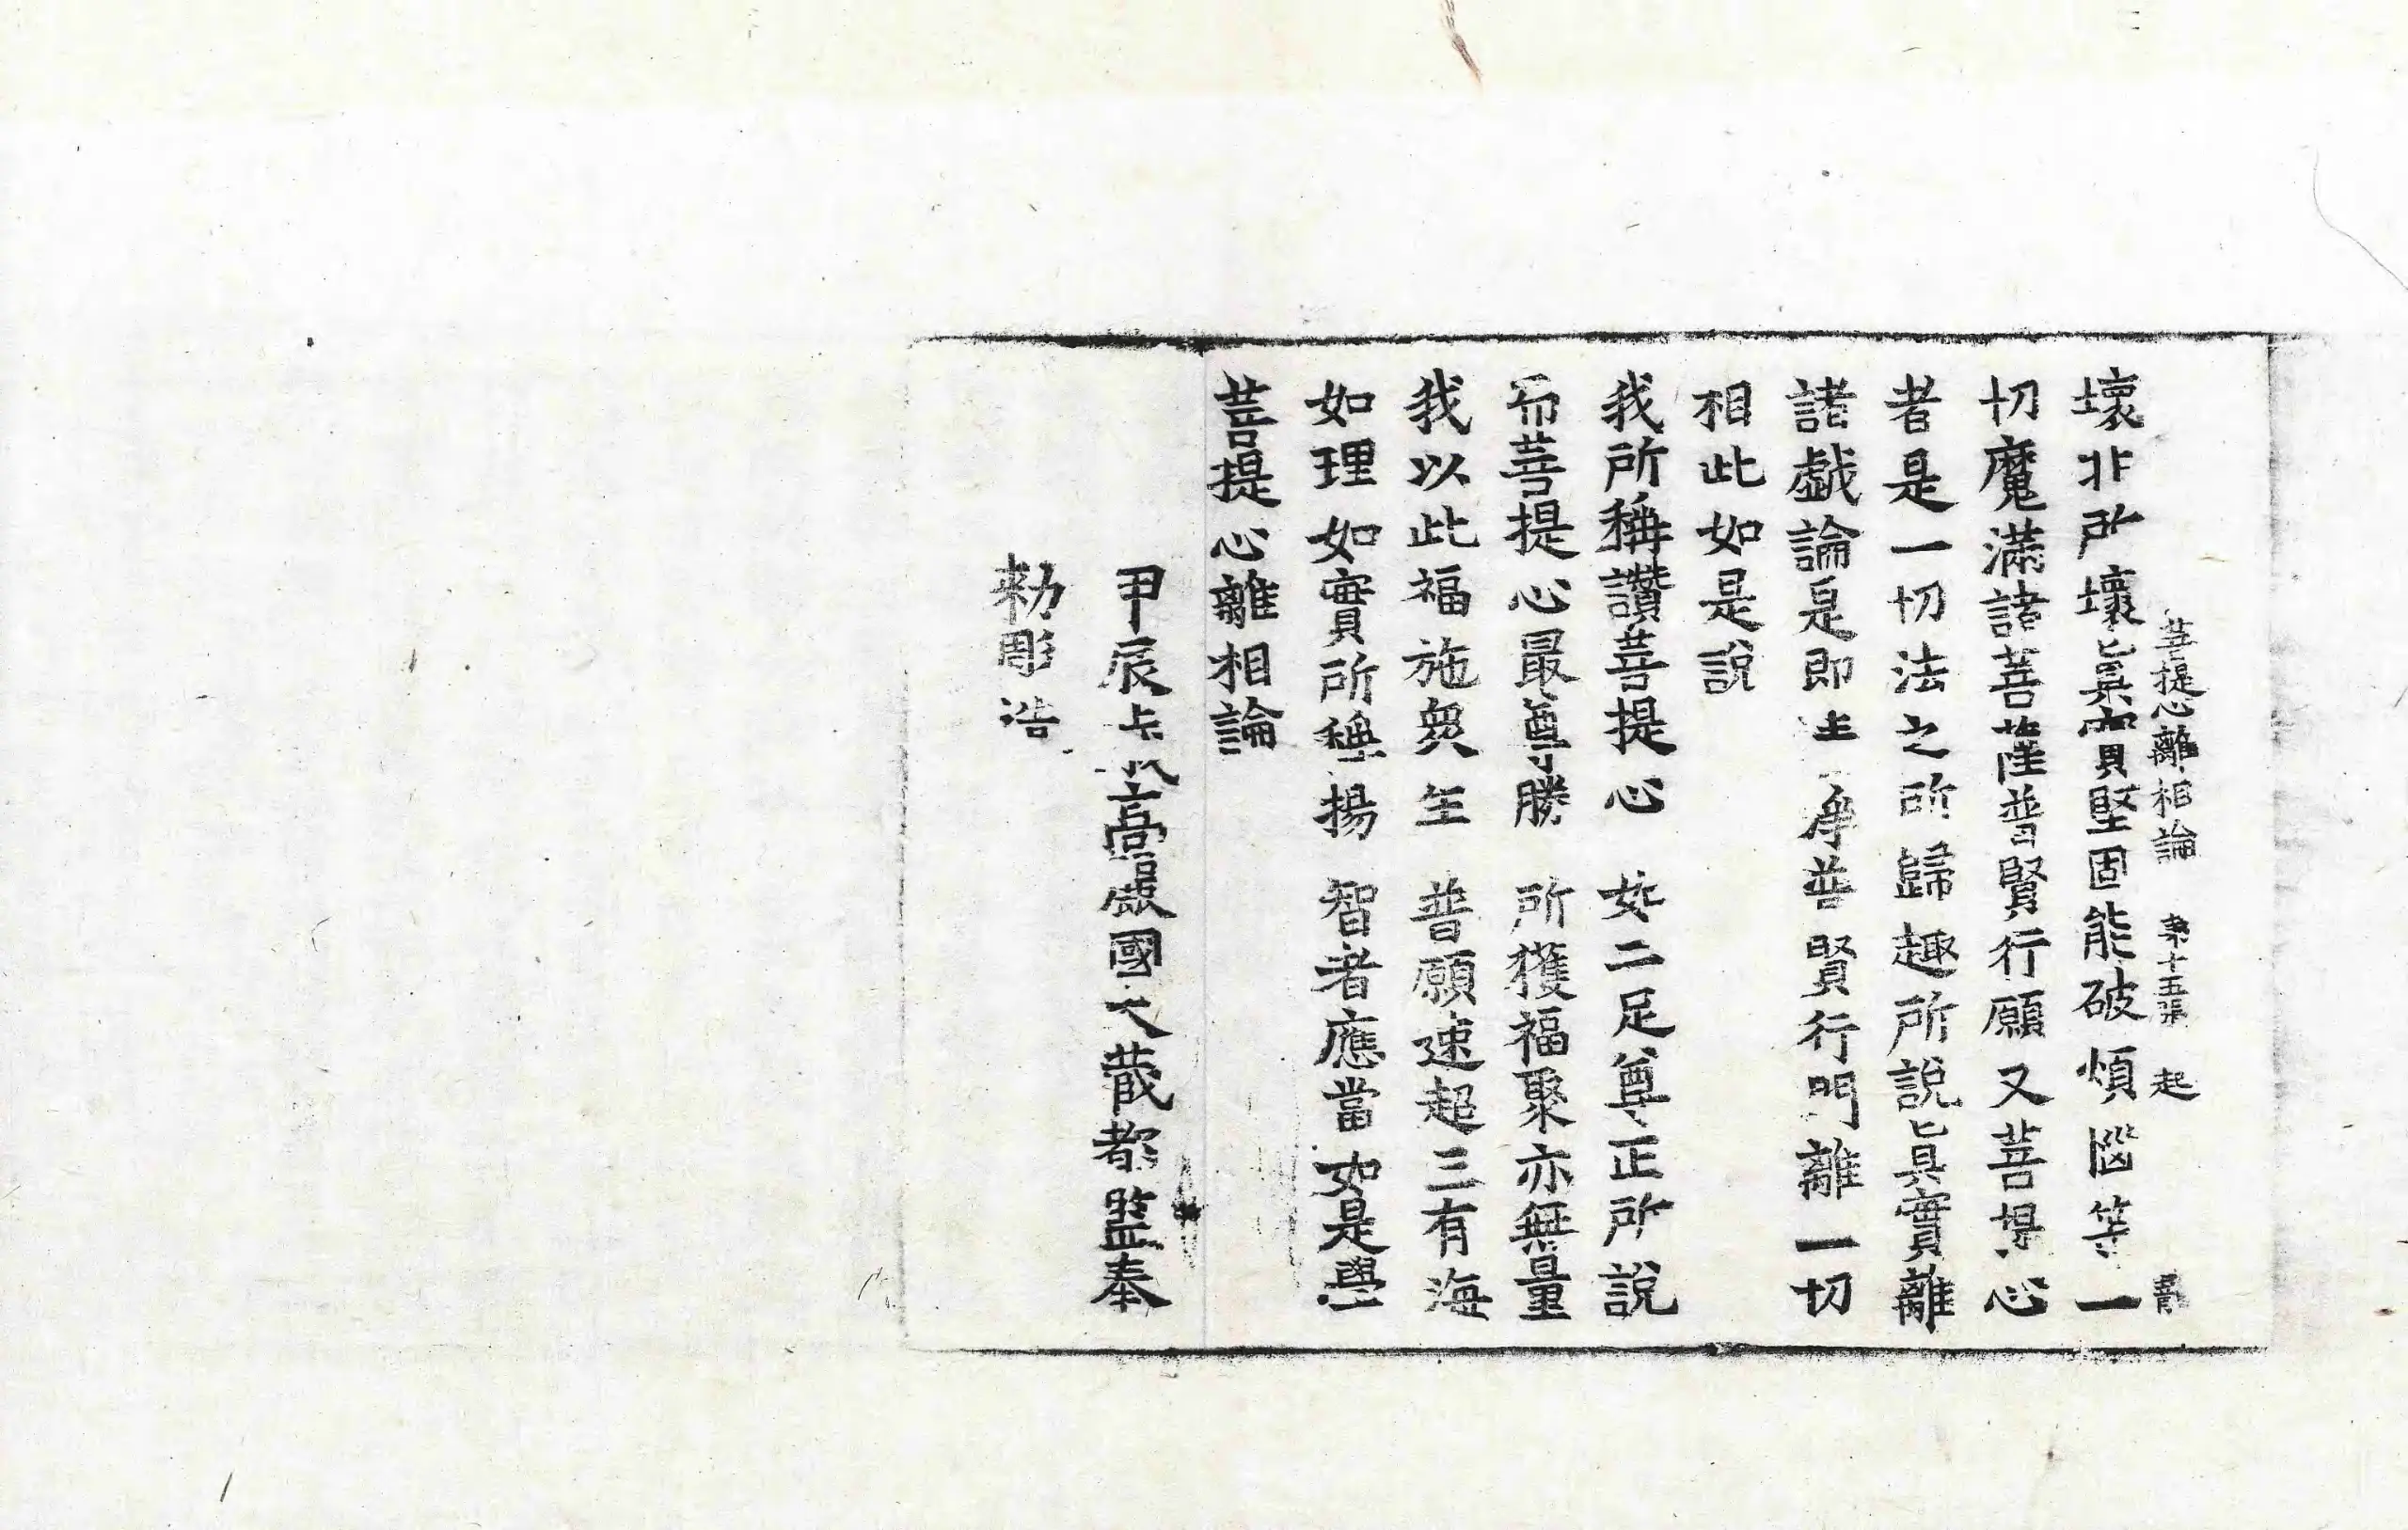 菩提心離相論 第十五張 起
壞非所壞眞實堅固能破煩惱等一
切魔滿諸菩薩普賢行願又菩提心
者是一切法之所歸趣所說眞實離
諸戲論是即淸淨普賢行門離一切
相此如是說
我所稱讚菩提心 如二足尊正所說
而菩提心最尊勝 所獲福聚亦無量
我以此福施衆生 普願速超三有海
如理如實所稱揚 智者應當如是學
菩提心離相論
甲辰歲高麗國大藏都監奉
勅彫造